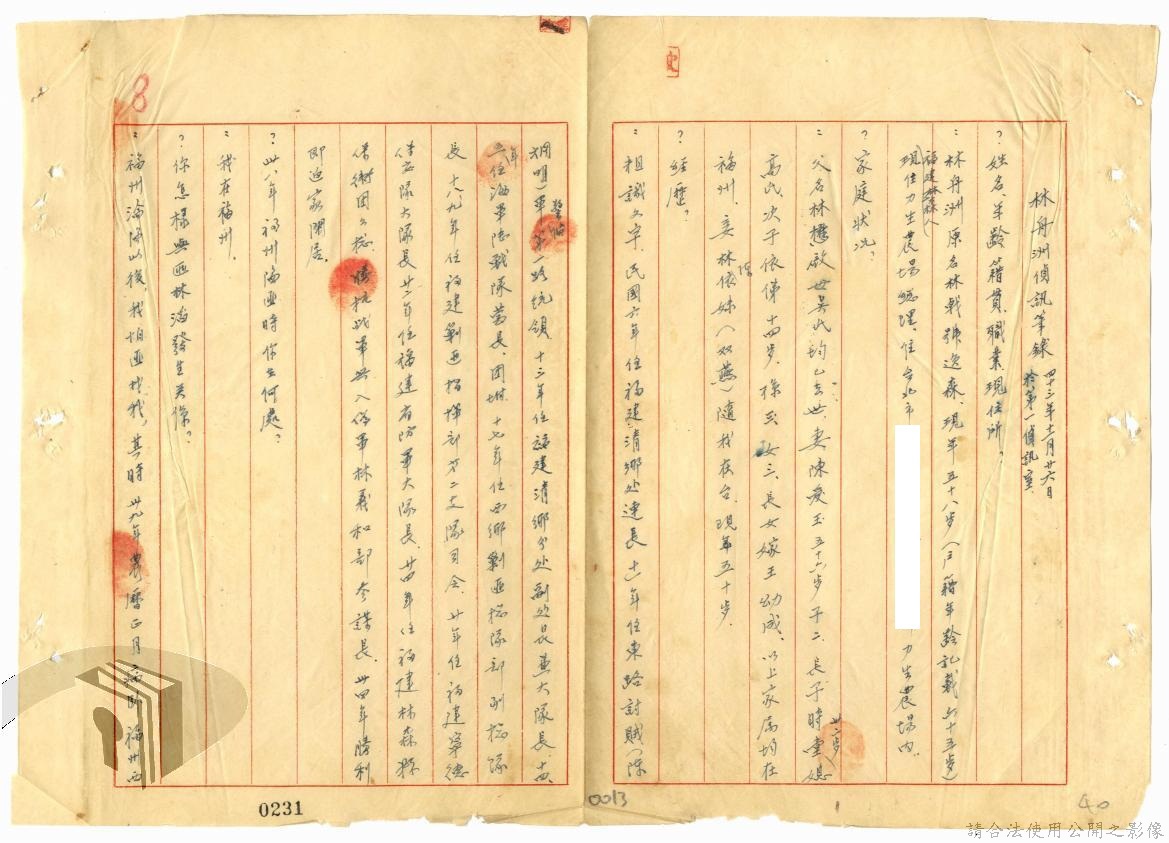 林舟洲偵訊筆錄
四十三年十一月廿六日
於第一偵訊室
?姓名、年齡、籍貫、職業、現住所?
:林舟洲原名林戟號逸森、現年五十八歲(戶籍年齡記載六十五歲)
福建林森人
現任力生農場經理、住台北市 力生農場內。
?家庭狀況?
:父名林懋啟母吳氏均已去世、妻陳愛玉五十六歲子二、長子時重 媳
廿二歲
高氏次子依俤十四歲、孫 女三、長女嫁王幼成、以上家屬均在
福州、妾林依妹(双燕)隨我在台、現年五十歲。
?經歷?
:粗識文字、民國六年任福建清鄉处連長十一年任東路討賊(陳
炯明)軍第一路統領、十三年任福建清鄉分处副处長兼大隊長、十四
年任海軍陸戰隊營長、團 十七年任西鄉剿匪總隊部副總隊
長、十八九年任福建剿匪指揮部第二支隊司令、廿年任福建寧德
保安隊大隊長廿二年任福建省防軍大隊長、廿四年任福建林森縣
保衛團 總、 抗战軍 入偽軍林義和部參謀長、卅四年勝利
即迫家閒居。
?卅八年福州陷匪時你在何處?
:我在福州。
?你怎樣與匪林海發生关係?
:福州淪陷以後、我怕匪找我、其時卅九年農曆正月病卧福州西
8
0231
0013
40
請合法使用公開之影像